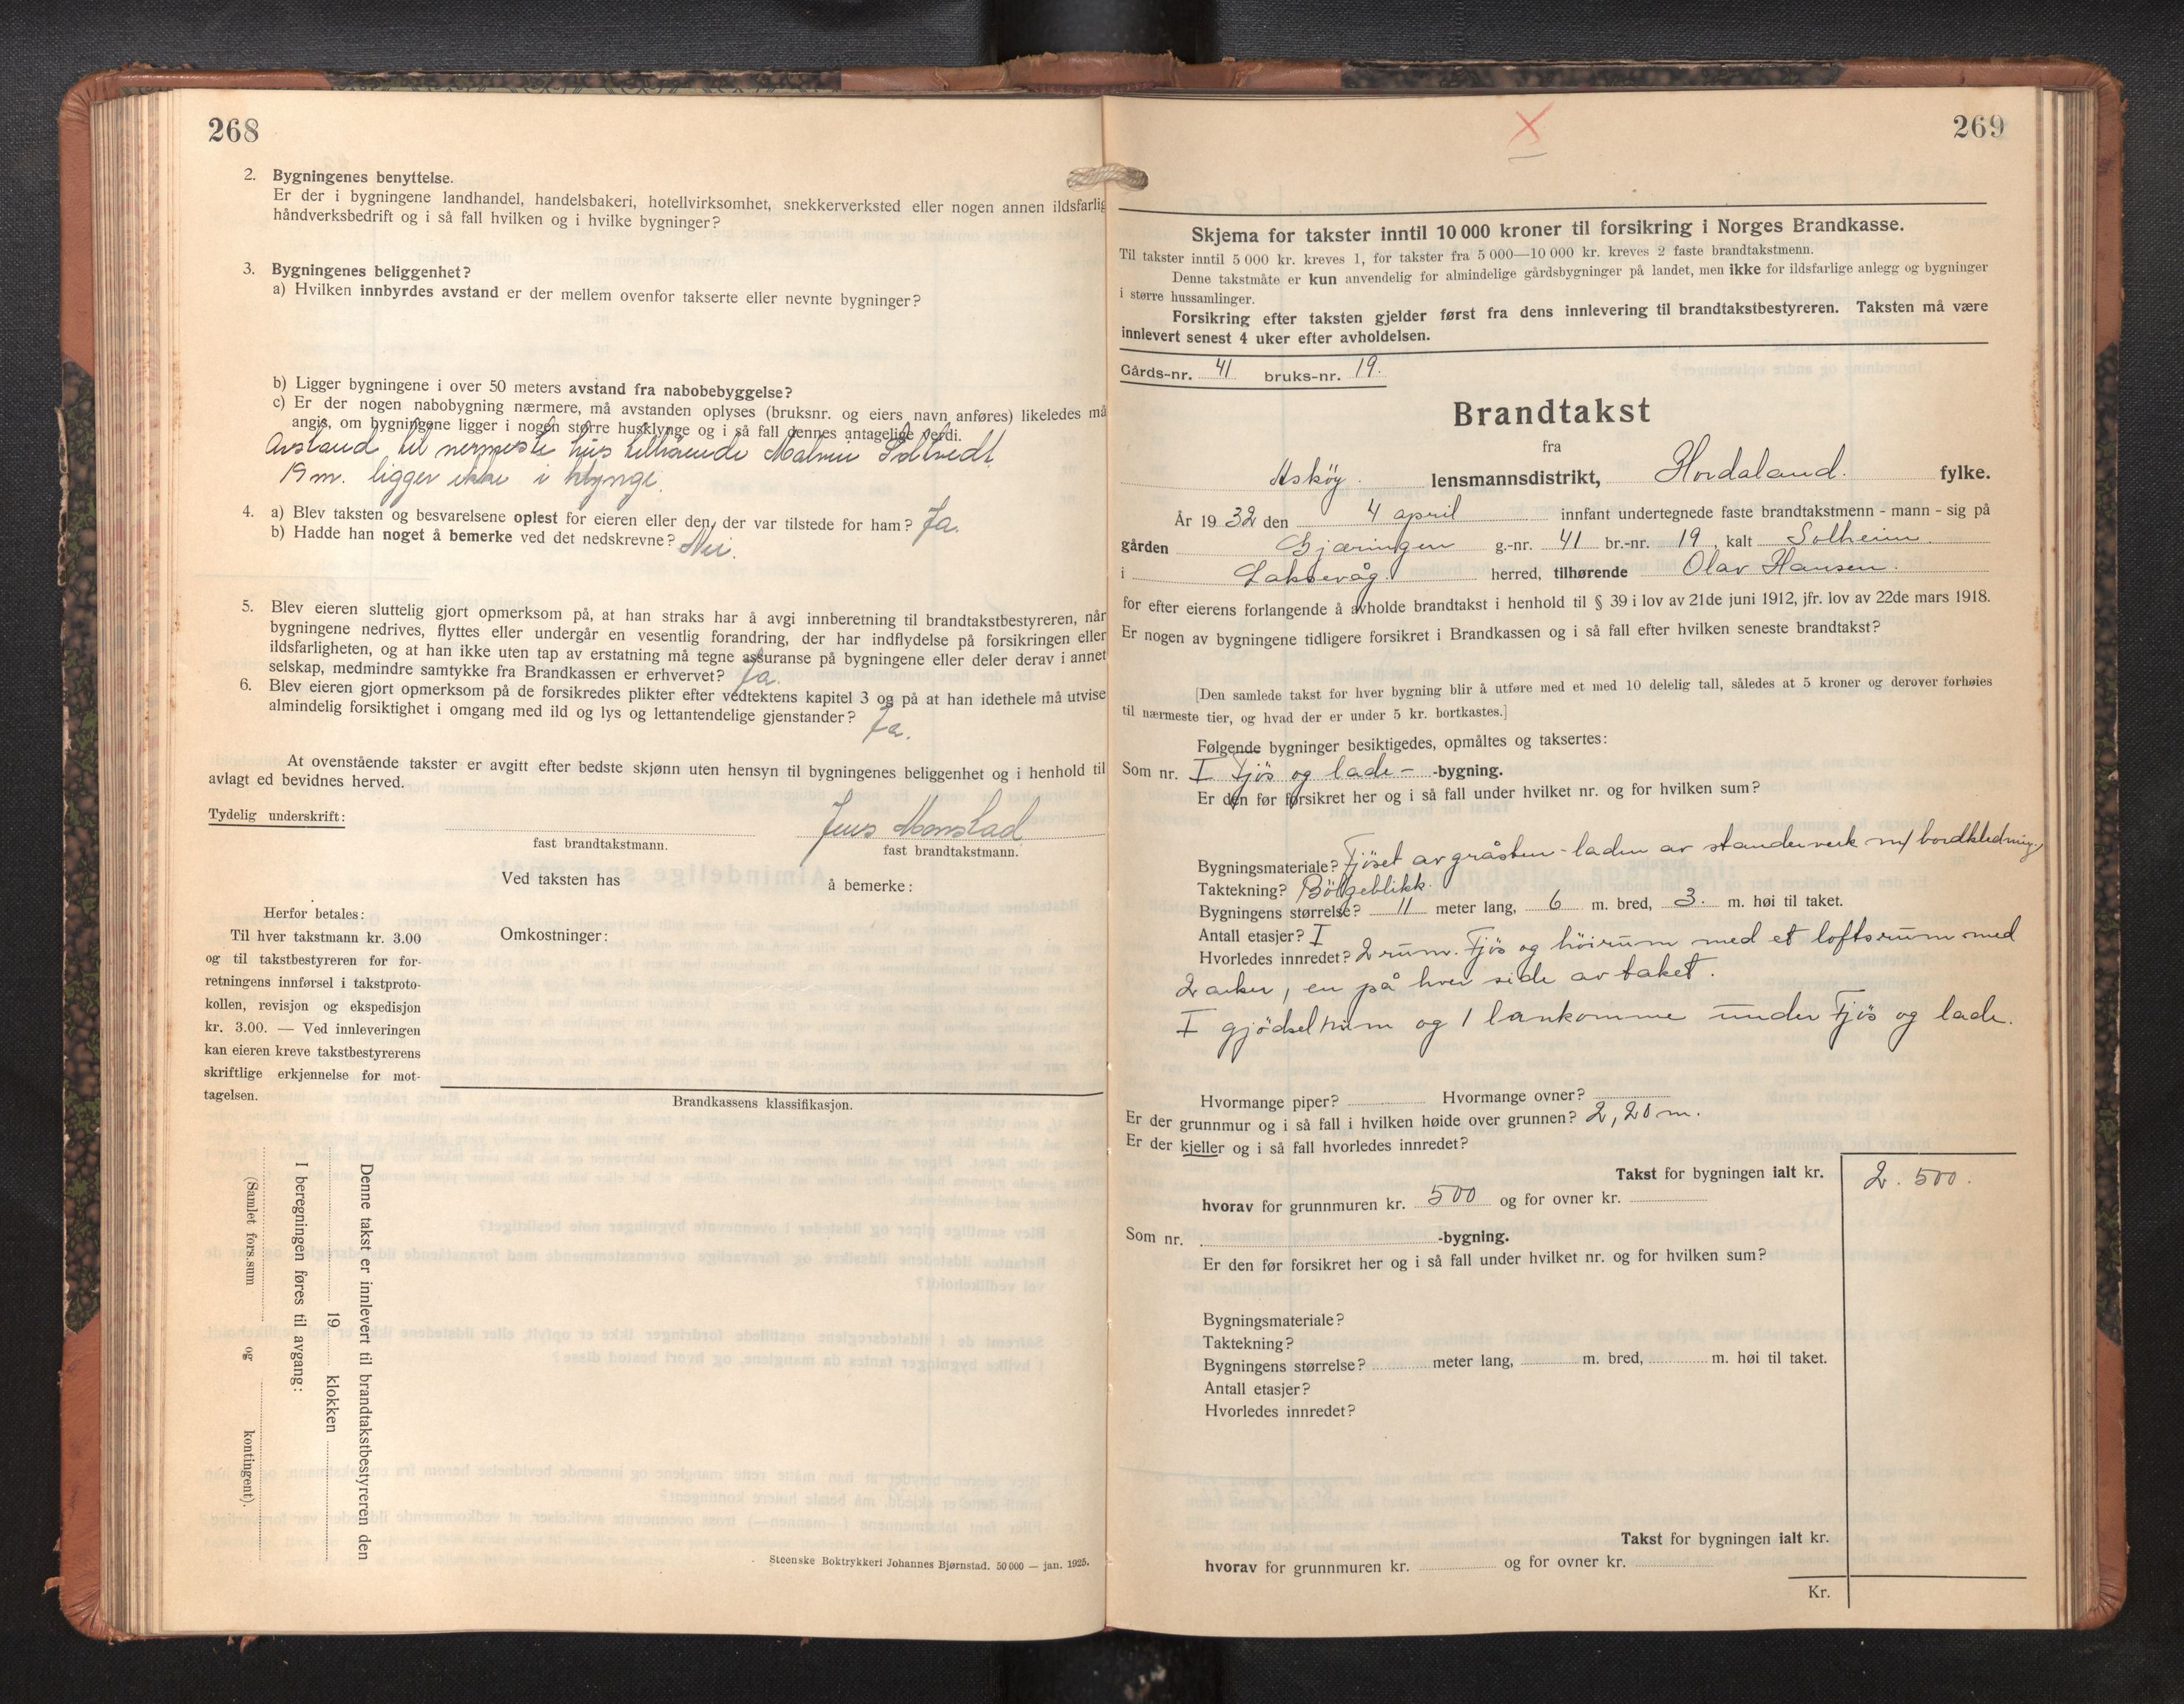 268
2. Bygningenes benyttelse.
Er der i bygningene landhandel, handelsbakeri, hotellvirksomhet, snekkerverksted eller nogen annen ildsfarlig
håndverksbedrift og i så fall hvilken og i hvilke bygninger?
3. Bygningenes beliggenhet?
a) Hvilken innbyrdes avstand er der mellem ovenfor takserte eller nevnte bygninger?
b) Ligger bygningene i over 50 meters avstand fra nabobebyggelse?
c) Er der nogen nabobygning nærmere, må avstanden oplyses (bruksnr. og eiers navn anføres) likeledes må
angis, om bygningene ligger i nogen større husklynge og i så fall dennes antagelige verdi.
Avstand til nermeste hus tilhørende Malvin Soltvedt
19 m. ligger ikke i klynge.
4. a) Blev taksten og besvarelsene oplest for eieren eller den, der var tilstede for ham? Ja.
b) Hadde han noget å bemerke ved det nedskrevne? Nei.
5. Blev eieren sluttelig gjort opmerksom på, at han straks har å avgi innberetning til brandtakstbestyreren, når
bygningene nedrives, flyttes eller undergår en vesentlig forandring, der har indflydelse på forsikringen eller
ildsfarligheten, og at han ikke uten tap av erstatning må tegne assuranse på bygningene eller deler derav i annet
selskap, medmindre samtykke fra Brandkassen er erhvervet? Ja.
6. Blev eieren gjort opmerksom på de forsikredes plikter efter vedtektens kapitel 3 og på at han idethele må utvise
almindelig forsiktighet i omgang med ild og lys og lettantendelige gjenstander? Ja.
At ovenstående takster er avgitt efter bedste skjønn uten hensyn til bygningenes beliggenhet og i henhold til
avlagt ed bevidnes herved.
Tydelig underskrift: Jens Monstad
fast brandtakstmann. fast brandtakstmann.
Ved taksten has å bemerke:
Herfor betales:
Til hver takstmann kr. 3.00
og til takstbestyreren for for-
retningens innførsel i takstproto-
kollen, revisjon og ekspedisjon
kr. 3.00. — Ved innleveringen
kan eieren kreve takstbestyrerens
skriftlige erkjennelse for mot-
tagelsen.
Omkostninger:
Brandkassens klassifikasjon.
Denne takst er innlevert til brandtakstbestyreren den
19 klokken
I beregningen føres til avgang:
(Samlet fors.sum og kontingent).
Steenske Boktrykkeri Johannes Bjørnstad. 50 000 — jan. 1925.
X
269
Skjema for takster inntil 10 000 kroner til forsikring i Norges Brandkasse.
Til takster inntil 5 000 kr. kreves 1, for takster fra 5 000—10 000 kr. kreves 2 faste brandtakstmenn.
Denne takstmåte er kun anvendelig for almindelige gårdsbygninger på landet, men ikke for ildsfarlige anlegg og bygninger
i større hussamlinger.
Forsikring efter taksten gjelder først fra dens innlevering til brandtakstbestyreren. Taksten må være
innlevert senest 4 uker efter avholdelsen.
Gårds-nr. 41 bruks-nr. 19.
Brandtakst
fra
Asköy. lensmannsdistrikt, Hordaland. fylke.
År 1932 den 4 april innfant undertegnede faste brandtakstmenn - mann - sig på
gården Gjæringen g.-nr. 41 br.-nr. 19, kalt Solheim.
i Laksevåg. herred, tilhørende Olav Hansen.
for efter eierens forlangende å avholde brandtakst i henhold til § 39 i lov av 21de juni 1912, jfr. lov av 22de mars 1918.
Er nogen av bygningene tidligere forsikret i Brandkassen og i så fall efter hvilken seneste brandtakst?
[Den samlede takst for hver bygning blir å utføre med et med 10 delelig tall, således at 5 kroner og derover forhøies
til nærmeste tier, og hvad der er under 5 kr. bortkastes.]
Følgende bygninger besiktigedes, opmåltes og taksertes:
Som nr. I Fjös og lade- -bygning.
Er den før forsikret her og i så fall under hvilket nr. og for hvilken sum?
Bygningsmateriale? Fjöset av gråsten - laden av standerverk m/ bordkledning,
Taktekning? Bölgeblikk.
Bygningens størrelse? 11 meter lang, 6 m. bred, 3. m. høi til taket.
Antall etasjer? I
Hvorledes innredet? 2 rum. Fjös og höirum med et loftsrum med
2 arker, en på hver side av taket.
I gjödselrum og 1 lankomme under Fjös og lade.
Hvormange piper? Hvormange ovner?
Er der grunnmur og i så fall i hvilken høide over grunnen? 2,20 m.
Er der kjeller og i så fall hvorledes innredet?
Takst for bygningen ialt kr. 2.500.
hvorav for grunnmuren kr. 500 og for ovner kr.
Som nr. -bygning.
Er den før forsikret her og i så fall under hvilket nr. og for hvilken sum?
Bygningsmateriale?
Taktekning?
Bygningens størrelse? meter lang, m. bred, m. høi til taket.
Antall etasjer?
Hvorledes innredet?
Takst for bygningen ialt kr.
hvorav for grunnmuren kr. og for ovner kr.
Kr.